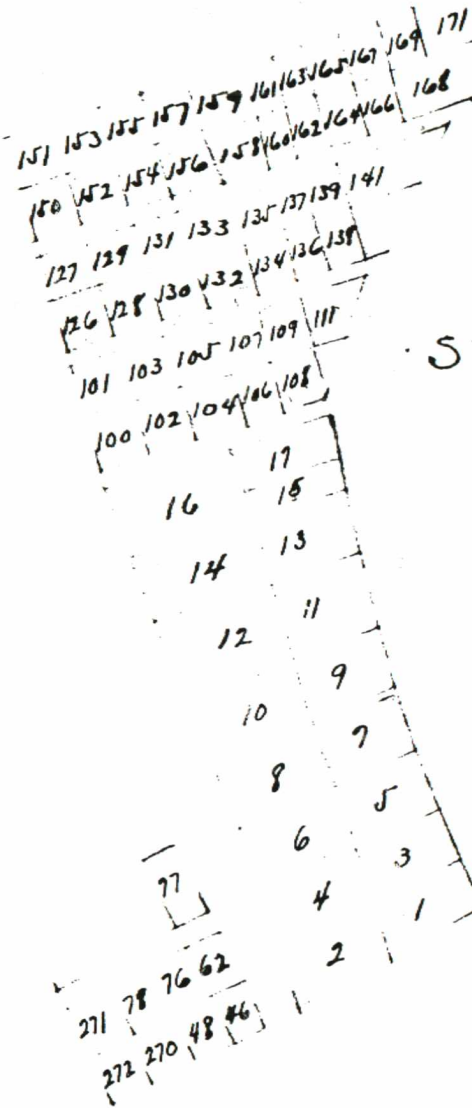 151 153 155 157 159 161 163 165 167 169 171
150 152 154 156 158 160 162 164 166 168
127 129 131 133 135 137 139 141
126 128 130 132 134 136 138
101 103 105 107 109 111
100 102 104 106 108
S
17
16 15
14 13
12 11
10 9
8 7
6 5
77 4 3
2 1
271 78 76 62
272 270 48 46